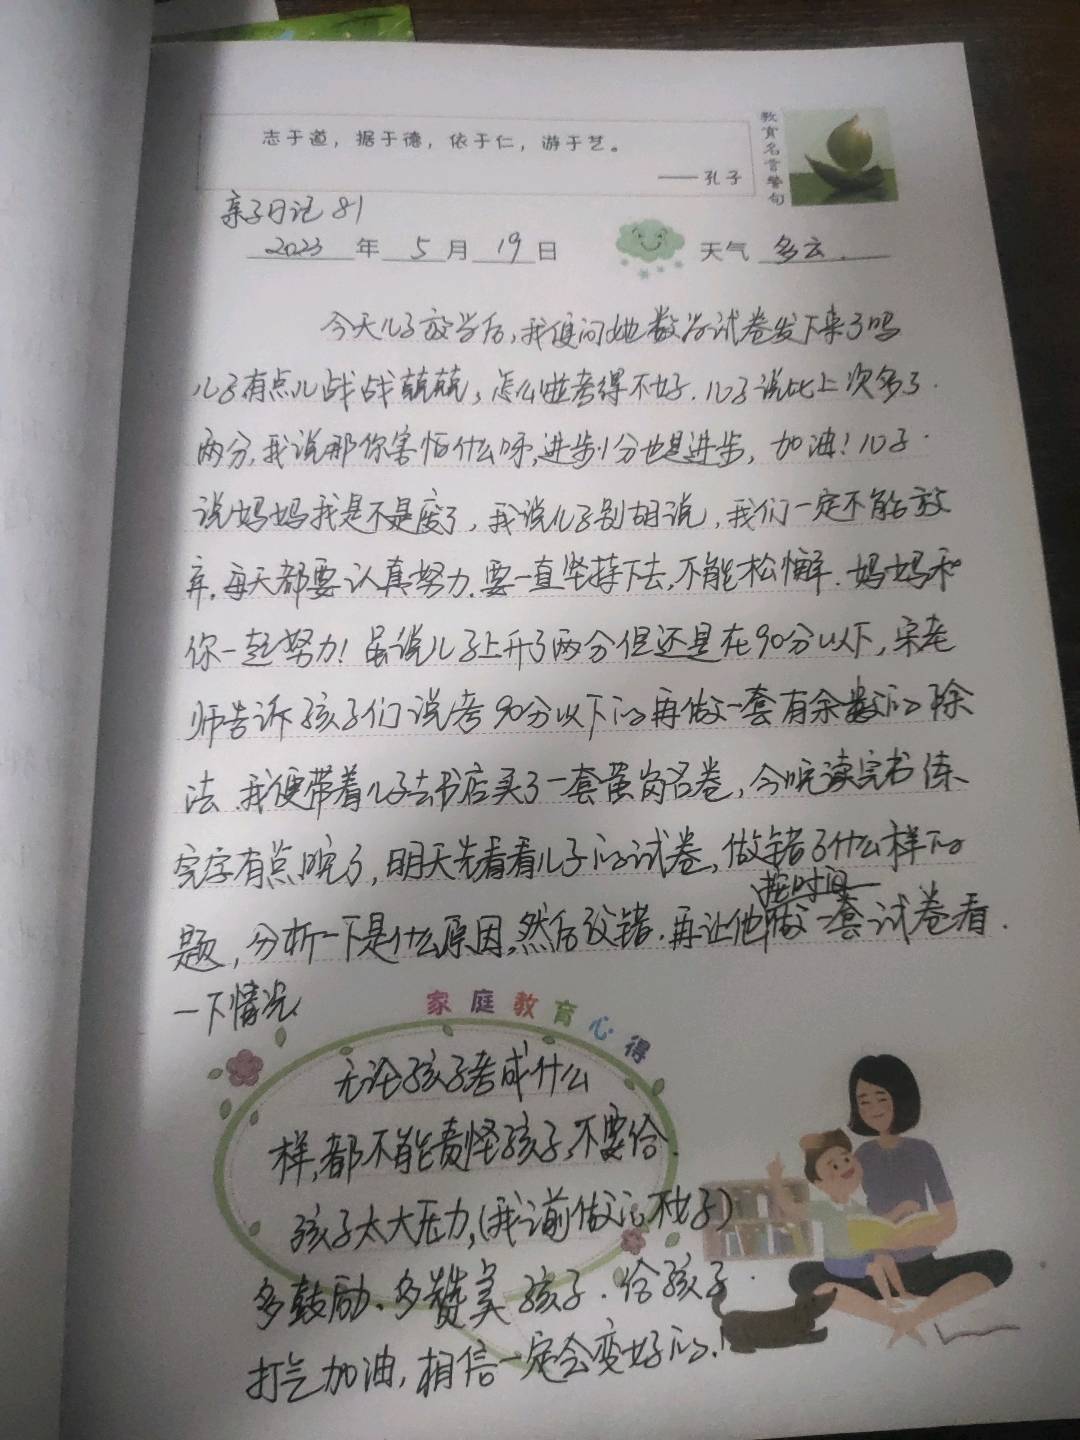 志于道，据于德，依于仁，游于艺。
——孔子
教育名言警句
亲子日记 81
2023 年 5 月 19 日 天气 多云.
今天儿子放学后,我便问他数学试卷发下来了吗
儿子有点儿战战兢兢,怎么啦考得不好.儿子说比上次多了.
两分,我说那你害怕什么呀,进步1分也是进步,加油!儿子.
说妈妈我是不是废了,我说儿子别胡说,我们一定不能放
弃.每天都要认真努力.要一直坚持下去,不能松懈.妈妈和
你一起努力!虽说儿子上升了两分但还是在90分以下,宋老
师告诉孩子们说考90分以下的再做一套有余数的除
法.我便带着儿子去书店买了一套黄冈名卷,今晚读完书练
完字有点晚了,明天先看看儿子的试卷,做错了什么样的
题,分析一下是什么原因,然后改错.再让他按时间做一套试卷看.
一下情况
家庭教育心得
无论孩子考成什么
样,都不能责怪孩子,不要给.
孩子太大压力,(我之前做的不好)
多鼓励.多赞美孩子.给孩子.
打气加油,相信一定会变好的.!